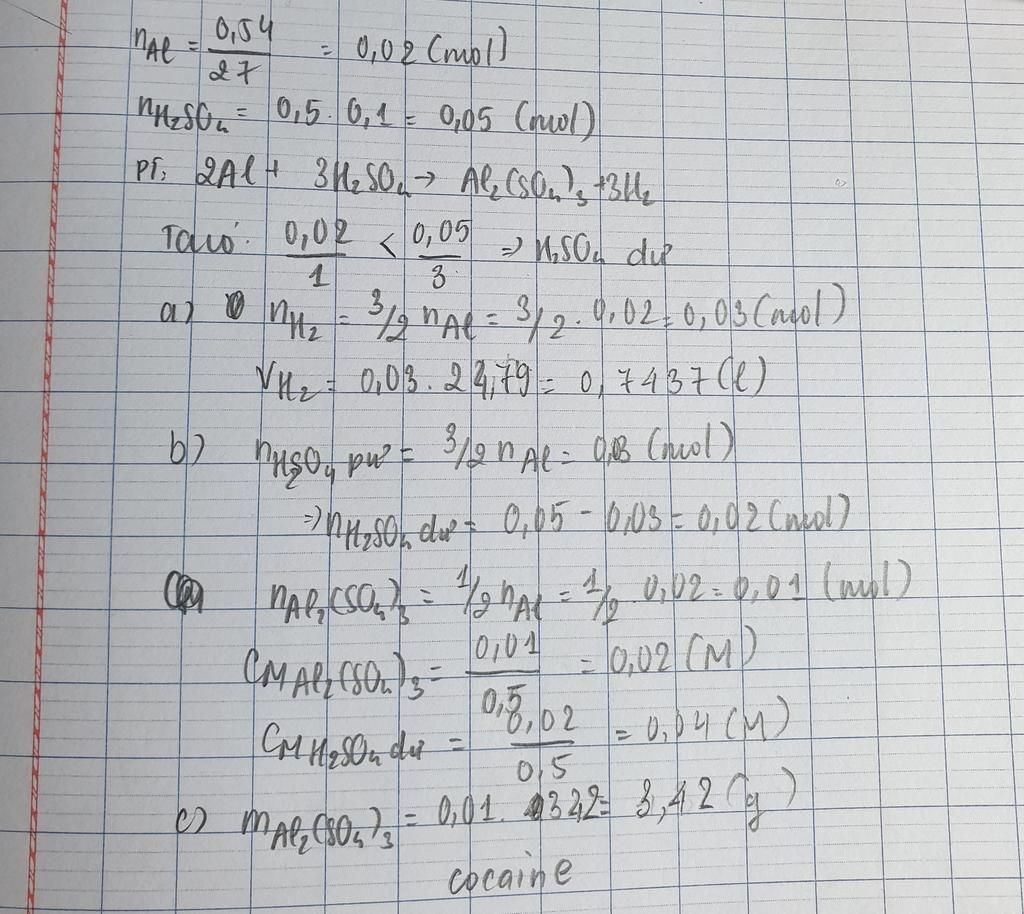 nAl = 0,54/27 = 0,02 (mol)
nH2SO4 = 0,5 . 0,1 = 0,05 (mol)
pt: 2Al + 3H2SO4 → Al2(SO4)3 + 3H2
Ta có: 0,02/1 < 0,05/3 => H2SO4 dư
a) nH2 = 3/2 nAl = 3/2 . 0,02 = 0,03 (mol)
VH2 = 0,03 . 24,79 = 0,7437 (l)
b) nH2SO4 pư = 3/2 nAl = 0,03 (mol)
=> nH2SO4 dư = 0,05 - 0,03 = 0,02 (mol)
nAl2(SO4)3 = 1/2 nAl = 1/2 . 0,02 = 0,01 (mol)
CM Al2(SO4)3 = 0,01/0,5 = 0,02 (M)
CM H2SO4 dư = 0,02/0,5 = 0,04 (M)
c) mAl2(SO4)3 = 0,01 . 342 = 3,42 (g)
cocaine